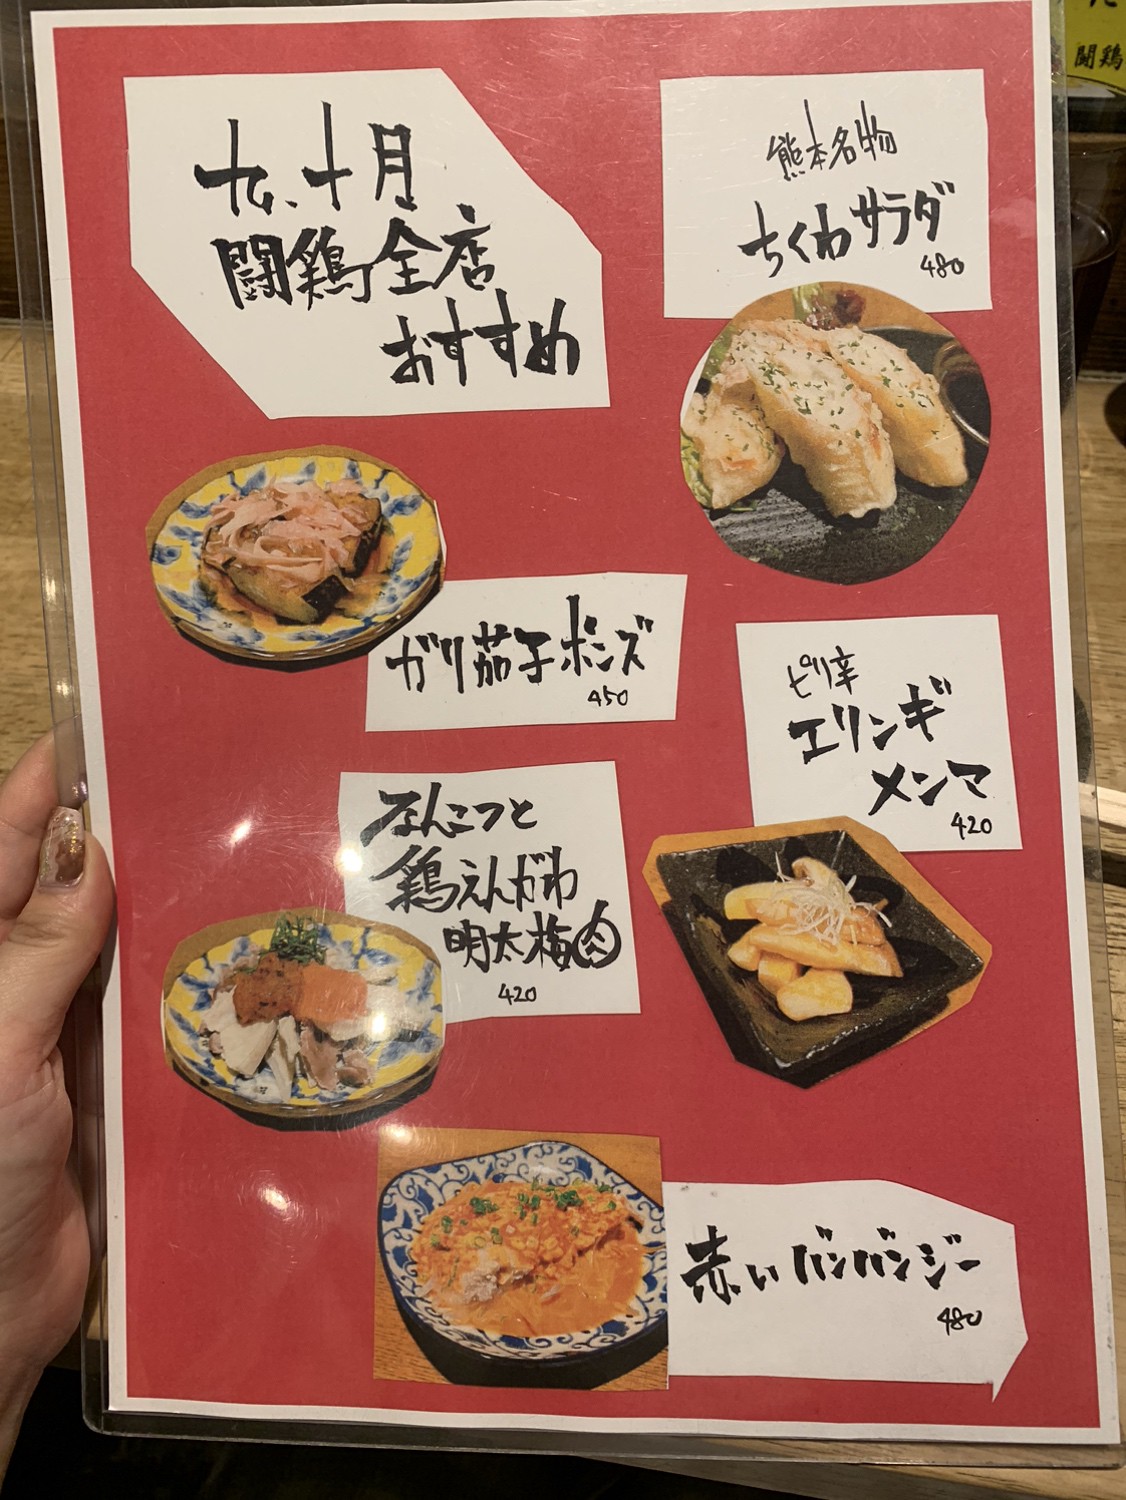 九、十月
闘鶏全店
おすすめ
熊本名物
ちくわサラダ
480
ガリ茄子ポンズ
450
ピリ辛
エリンギ
メンマ
420
なんこつと
鶏えんがわ
明太梅肉
420
赤いバンバンジー
480
闘鶏